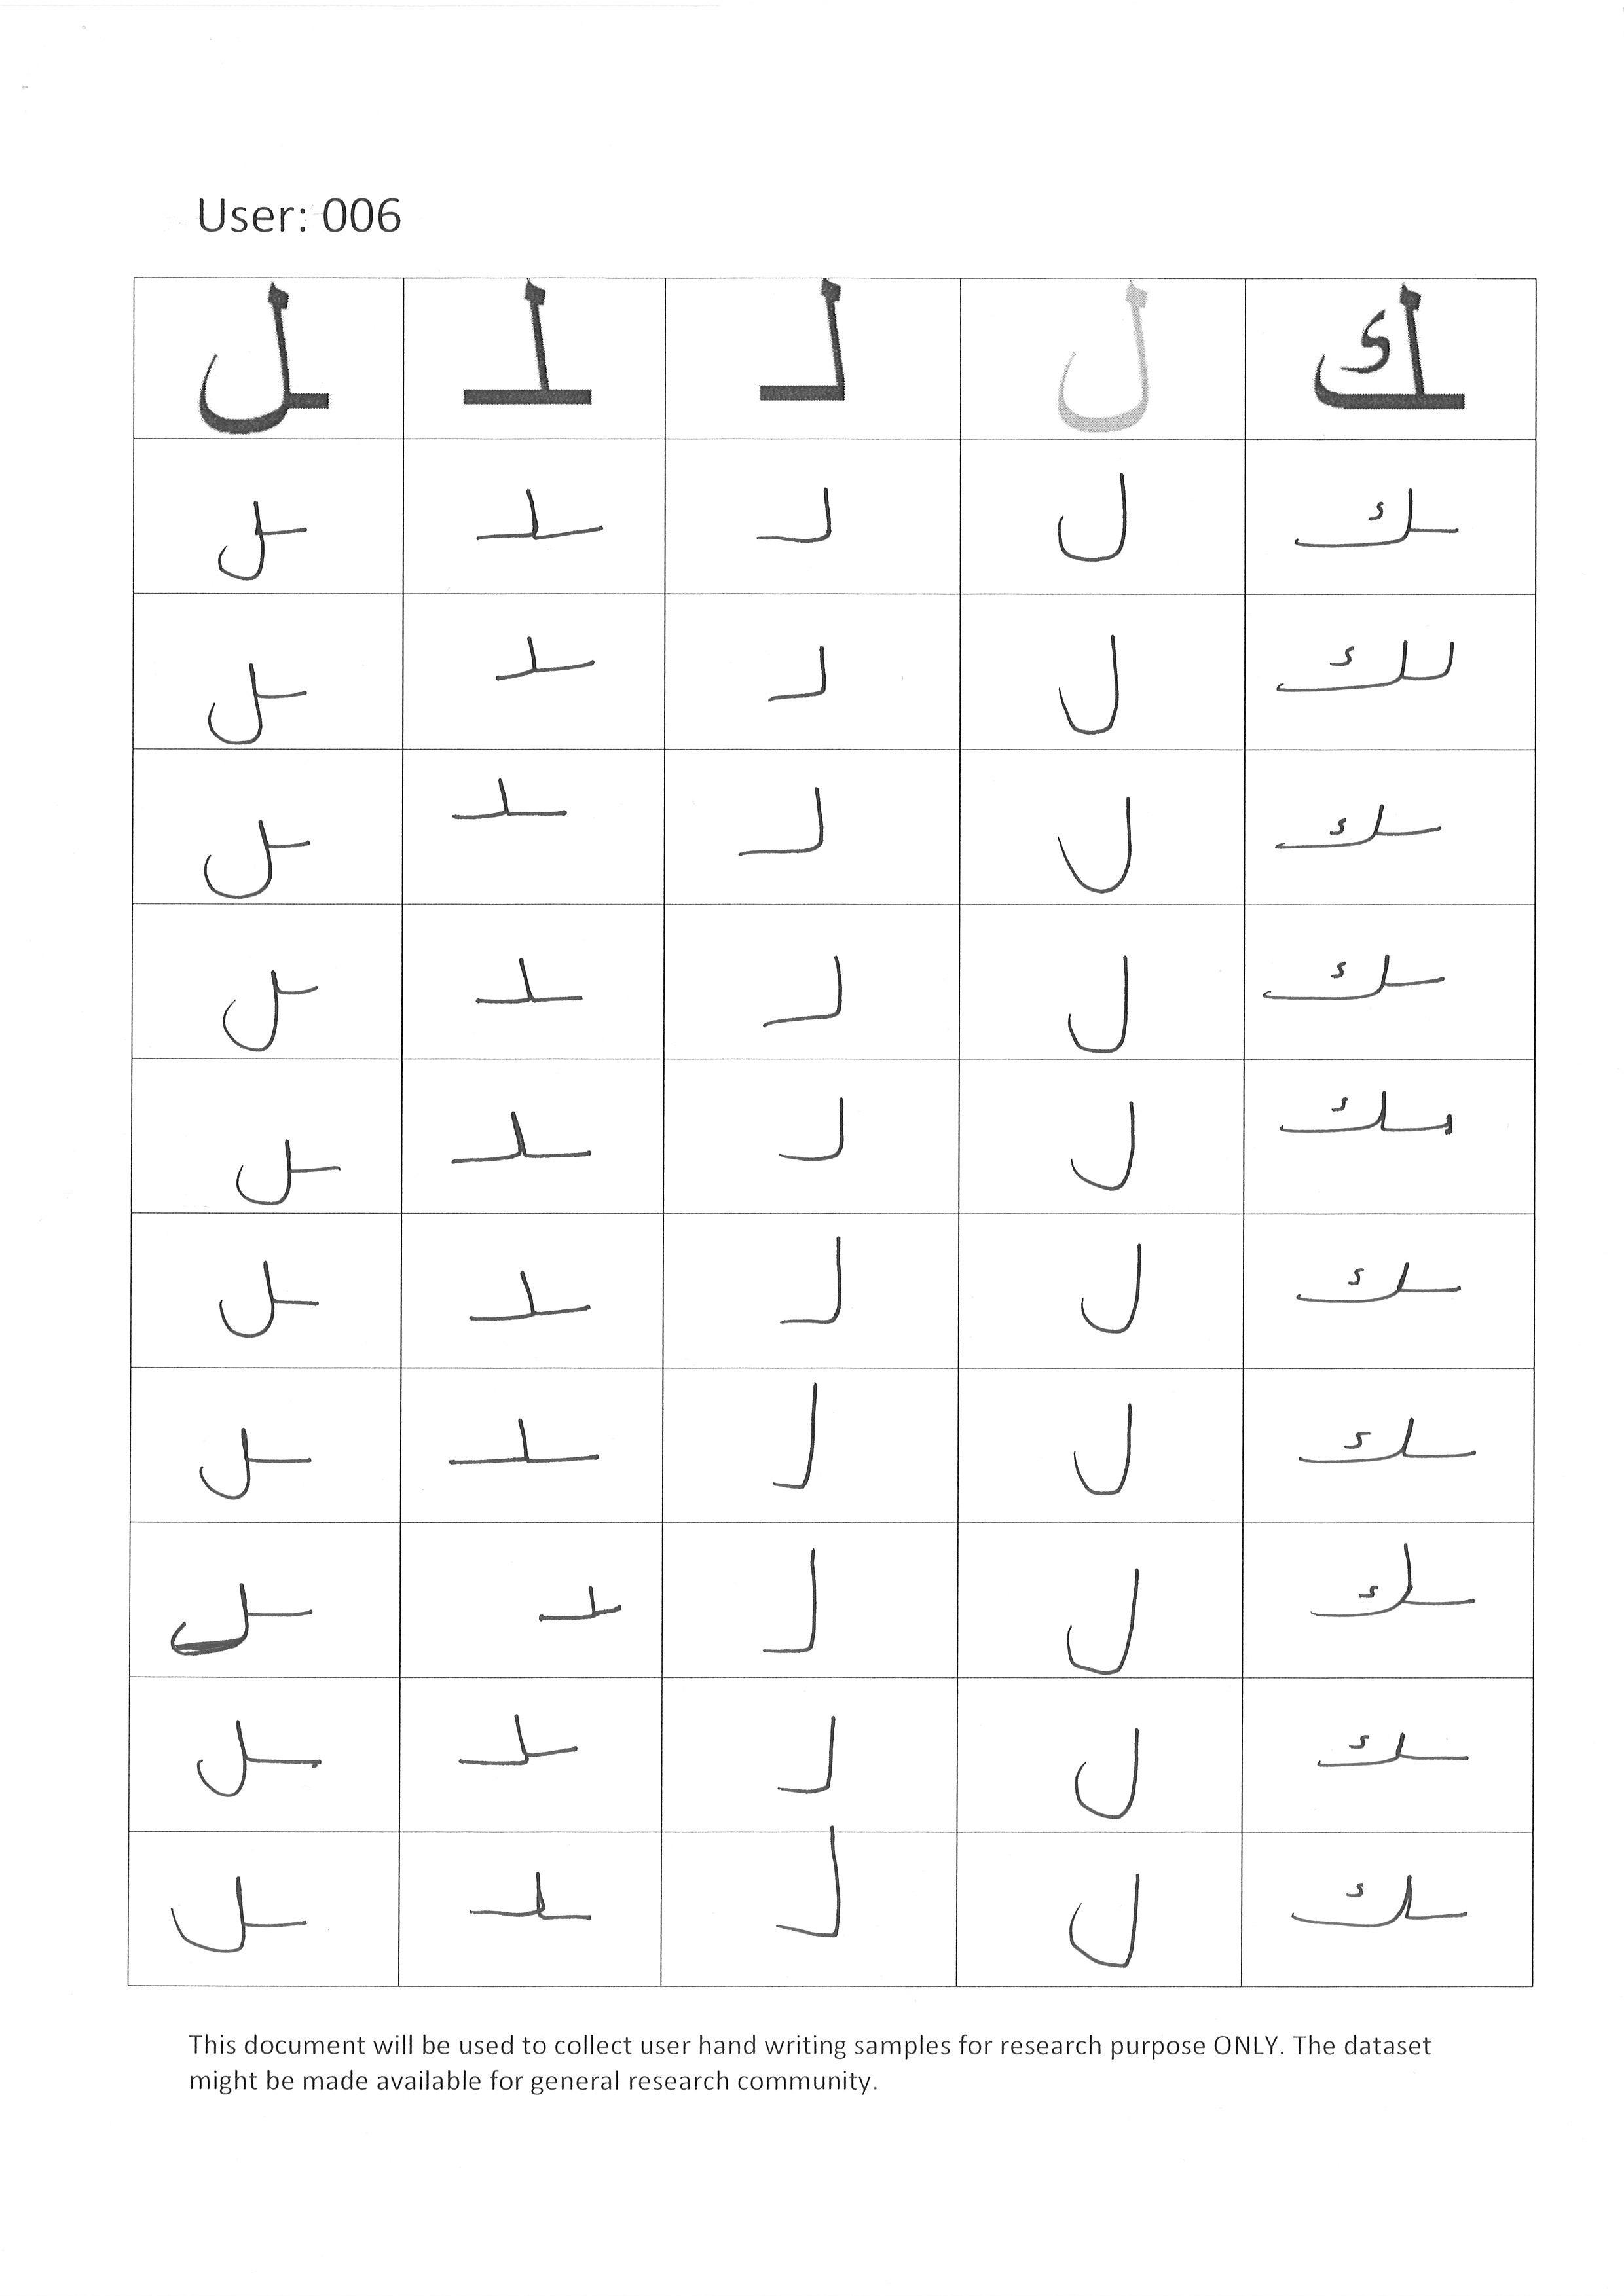 User: 006
ك ل لـ ـلـ ـل
ـك ل لـ ـلـ ـل
لك ل لـ ـلـ ـل
ـك ل لـ ـلـ ـل
ـك ل لـ ـلـ ـل
ـك ل لـ ـلـ ـل
ـك ل لـ ـلـ ـل
ـك ل لـ ـلـ ـل
ـك ل لـ ـلـ ـل
ـك ل لـ ـلـ ـل
ـك ل لـ ـلـ ـل
This document will be used to collect user hand writing samples for research purpose ONLY. The dataset
might be made available for general research community.